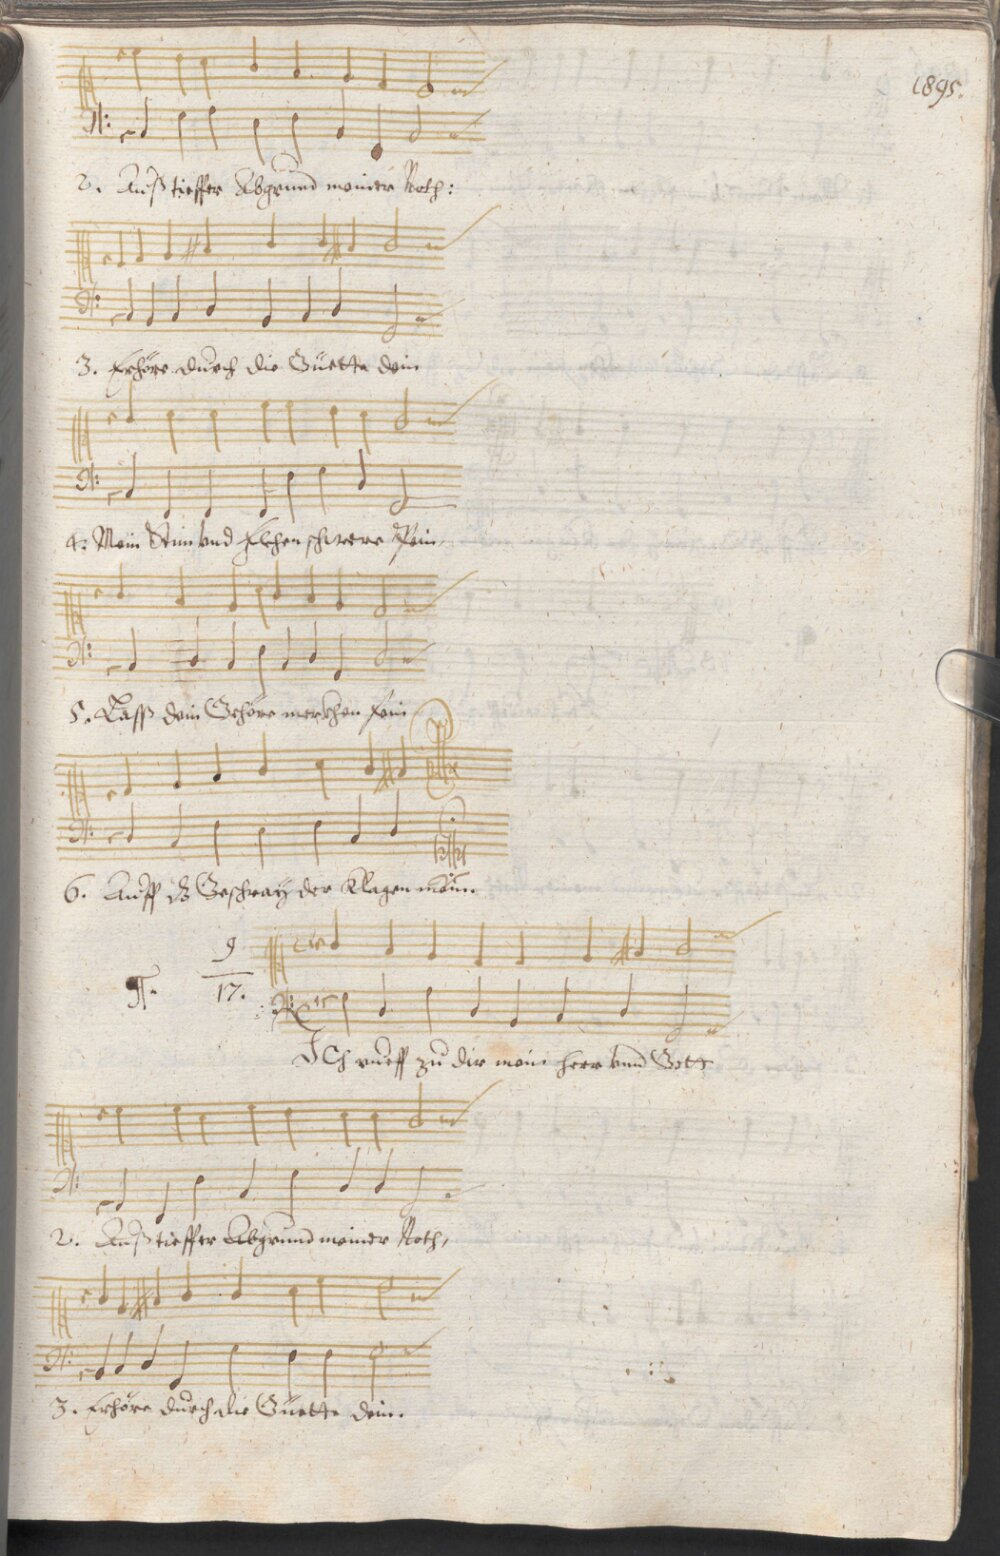 1895.
2. Auß tieffer Abgrund meiner Noth:
3. Erhöre durch die Güette dein
4. Mein Stim vnd flehen schwere Pein
5. Lass dein Gehöre merkhen fein
6. Auff dz Geschray der Klagen mein.
9
¶. 17.
ICh rueff zu dir mein Herr vnd Gott
2. Auß tieffer Abgrund meiner Noth,
3. Erhöre durch die Güette dein.